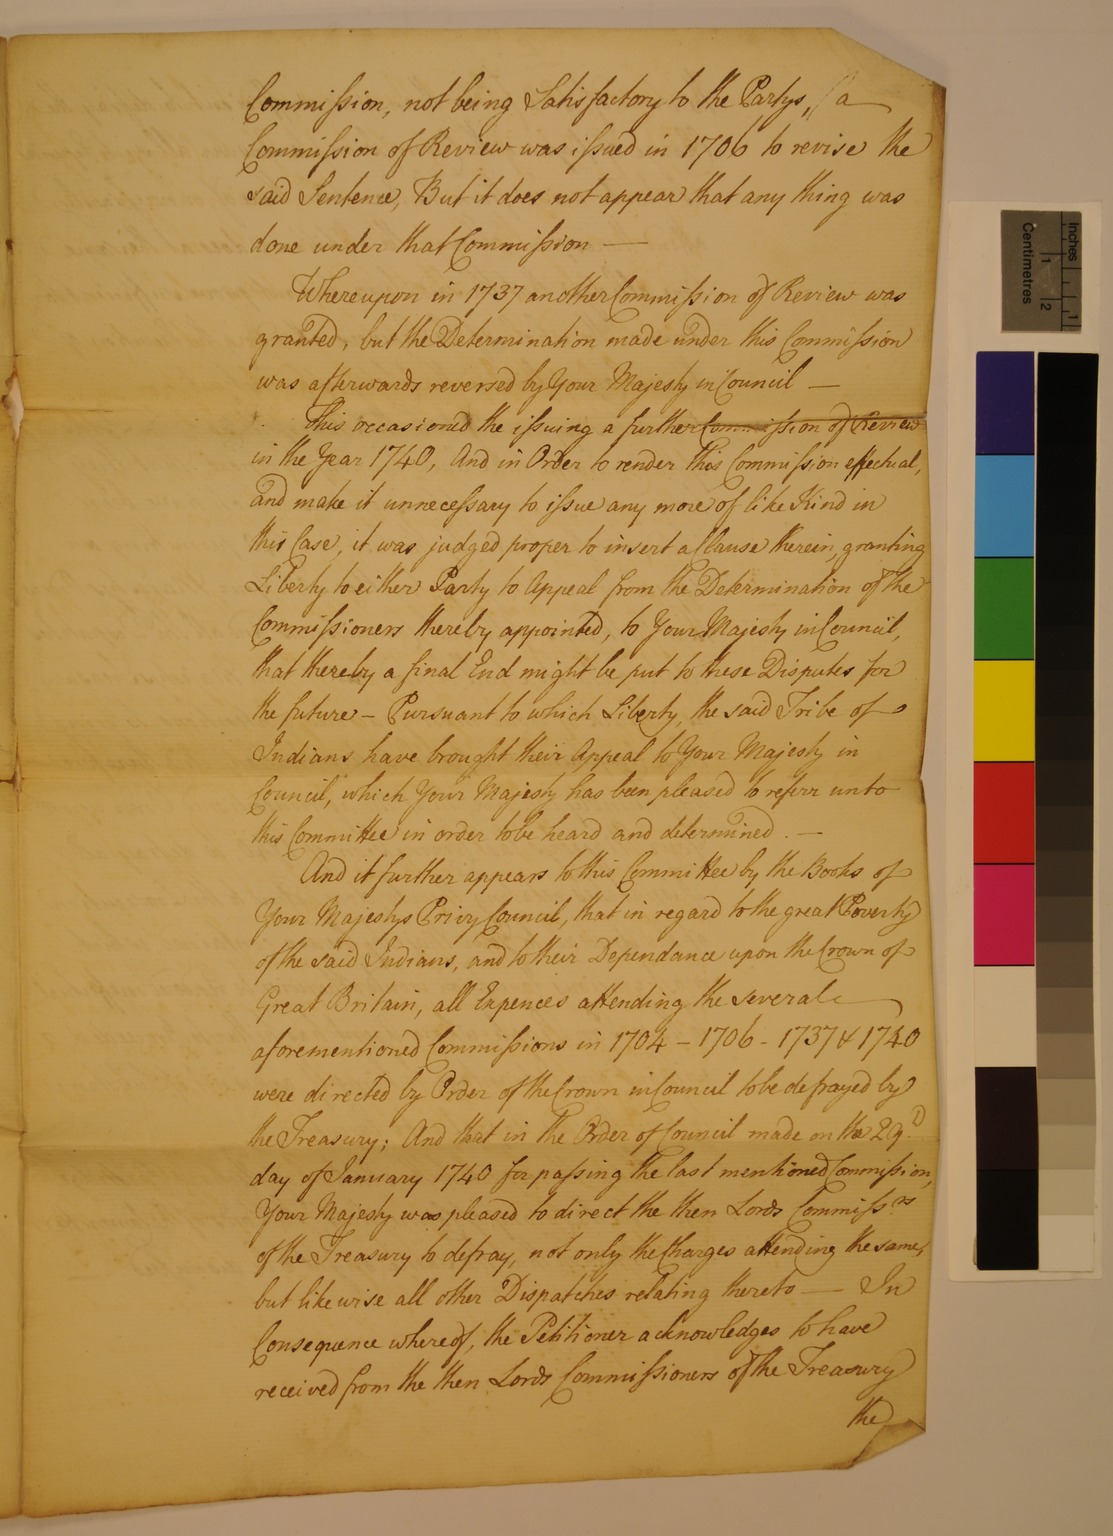 Commission, not being Satisfactory to the Partys, / a
Commission of Review was issued in 1706 to revise the
said Sentence, But it does not appear that any thing was
done under that Commission —
Whereupon in 1737 another Commission of Review was
granted, but the Determination made under this Commission
was afterwards reversed by Your Majesty in Council —
This occasioned the issuing a further Commission of Review
in the Year 1740, And in Order to render this Commission effectual,
and make it unnecessary to issue any more of like Kind in
this Case, it was judged proper to insert a Clause therein, granting
Liberty to either Party to Appeal from the Determination of the
Commissioners thereby appointed, to Your Majesty in Council,
that thereby a final End might be put to these Disputes for
the future – Pursuant to which Liberty, the said Tribe of
Indians have brought their Appeal to Your Majesty in
Council, which Your Majesty has been pleased to referr unto
this Committee in order to be heard and determined. —
And it further appears to this Committee by the Books of
Your Majestys Privy Council, that in regard to the great Poverty
of the said Indians, and to their Dependance upon the Crown of
Great Britain, all Expences attending the several
aforementioned Commissions in 1704 – 1706 - 1737 & 1740
were directed by Order of the Crown in Council to be defrayed by
the Treasury; And that in the Order of Council made on the 29.th
day of January 1740 for passing the last mentioned Commission,
Your Majesty was pleased to direct the then Lords Commiss.rs
of the Treasury to defray, not only the Charges attending the same,
but likewise all other Dispatches relating thereto — In
Consequence whereof, the Petitioner acknowledges to have
received from the then Lords Commissioners of the Treasury
the
Inches
1
Centimetres
1
2